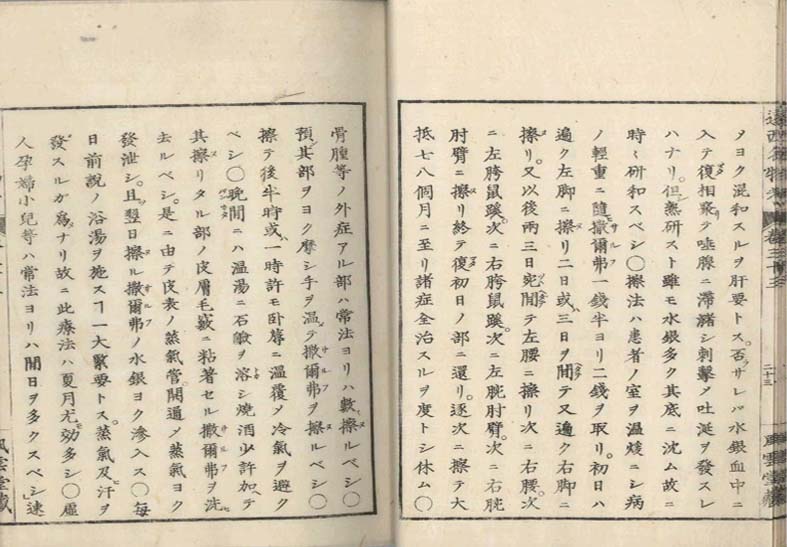 二十三
風雲堂藏
ヲヨク混和スルヲ肝要トス。否サレバ水銀血中ニ
入テ復相聚リテ唾腺ニ滞瀦シ刺撃メ吐涎ヲ發スレ
ハナリ。但シ熟研スト雖モ水銀多ク其底ニ沈ム故ニ
時々研和スベシ○擦法ハ患者ノ室ヲ温煖ニシ病
ノ輕重ニ隨ヒ撒爾弗一錢半ヨリ二錢ヲ取リ。初日ハ
遍ク左脚ニ擦リ二日或ハ三日ヲ間テ又遍ク右脚ニ
擦リ。又以後兩三日宛間テ左腰ニ擦リ次ニ右腰。次
ニ左胯鼠蹊。次ニ右胯鼠蹊。次ニ左腕肘臂。次ニ右腕
肘臂ニ擦リ終テ復初日ノ部ニ還リ。逐次ニ擦テ大
抵七八個月ニ至リ諸症全治スルヲ度トシ休ム○
骨腫等ノ外症アル部ハ常法ヨリハ數擦ルベシ○
預メ其部ヲヨク摩シ手ヲ温テ撒爾弗ヲ擦ルベシ○
擦テ後半時或ハ一時許モ臥蓐ニ温覆メ冷氣ヲ避ク
ベシ○晩間ニハ温湯ニ石鹸ヲ溶シ燒酒少許加ヘテ
其擦リタル部ノ皮膚毛竅ニ粘著セル撒爾弗ヲ洗ヒ
去ルベシ。是ニ由テ皮表ノ蒸氣管。開通メ蒸氣ヨク
發泄シ。且ツ翌日擦ル撒爾弗ノ水銀ヨク滲入ス○毎
日前説ノ浴湯ヲ施スヿ一大緊要トス。蒸氣及ビ汗ヲ
發スルガ爲ナリ故ニ此療法ハ夏月尤モ効多シ○虚
人孕婦小兒等ハ常法ヨリハ間日ヲ多クスベシ速
風雲堂藏